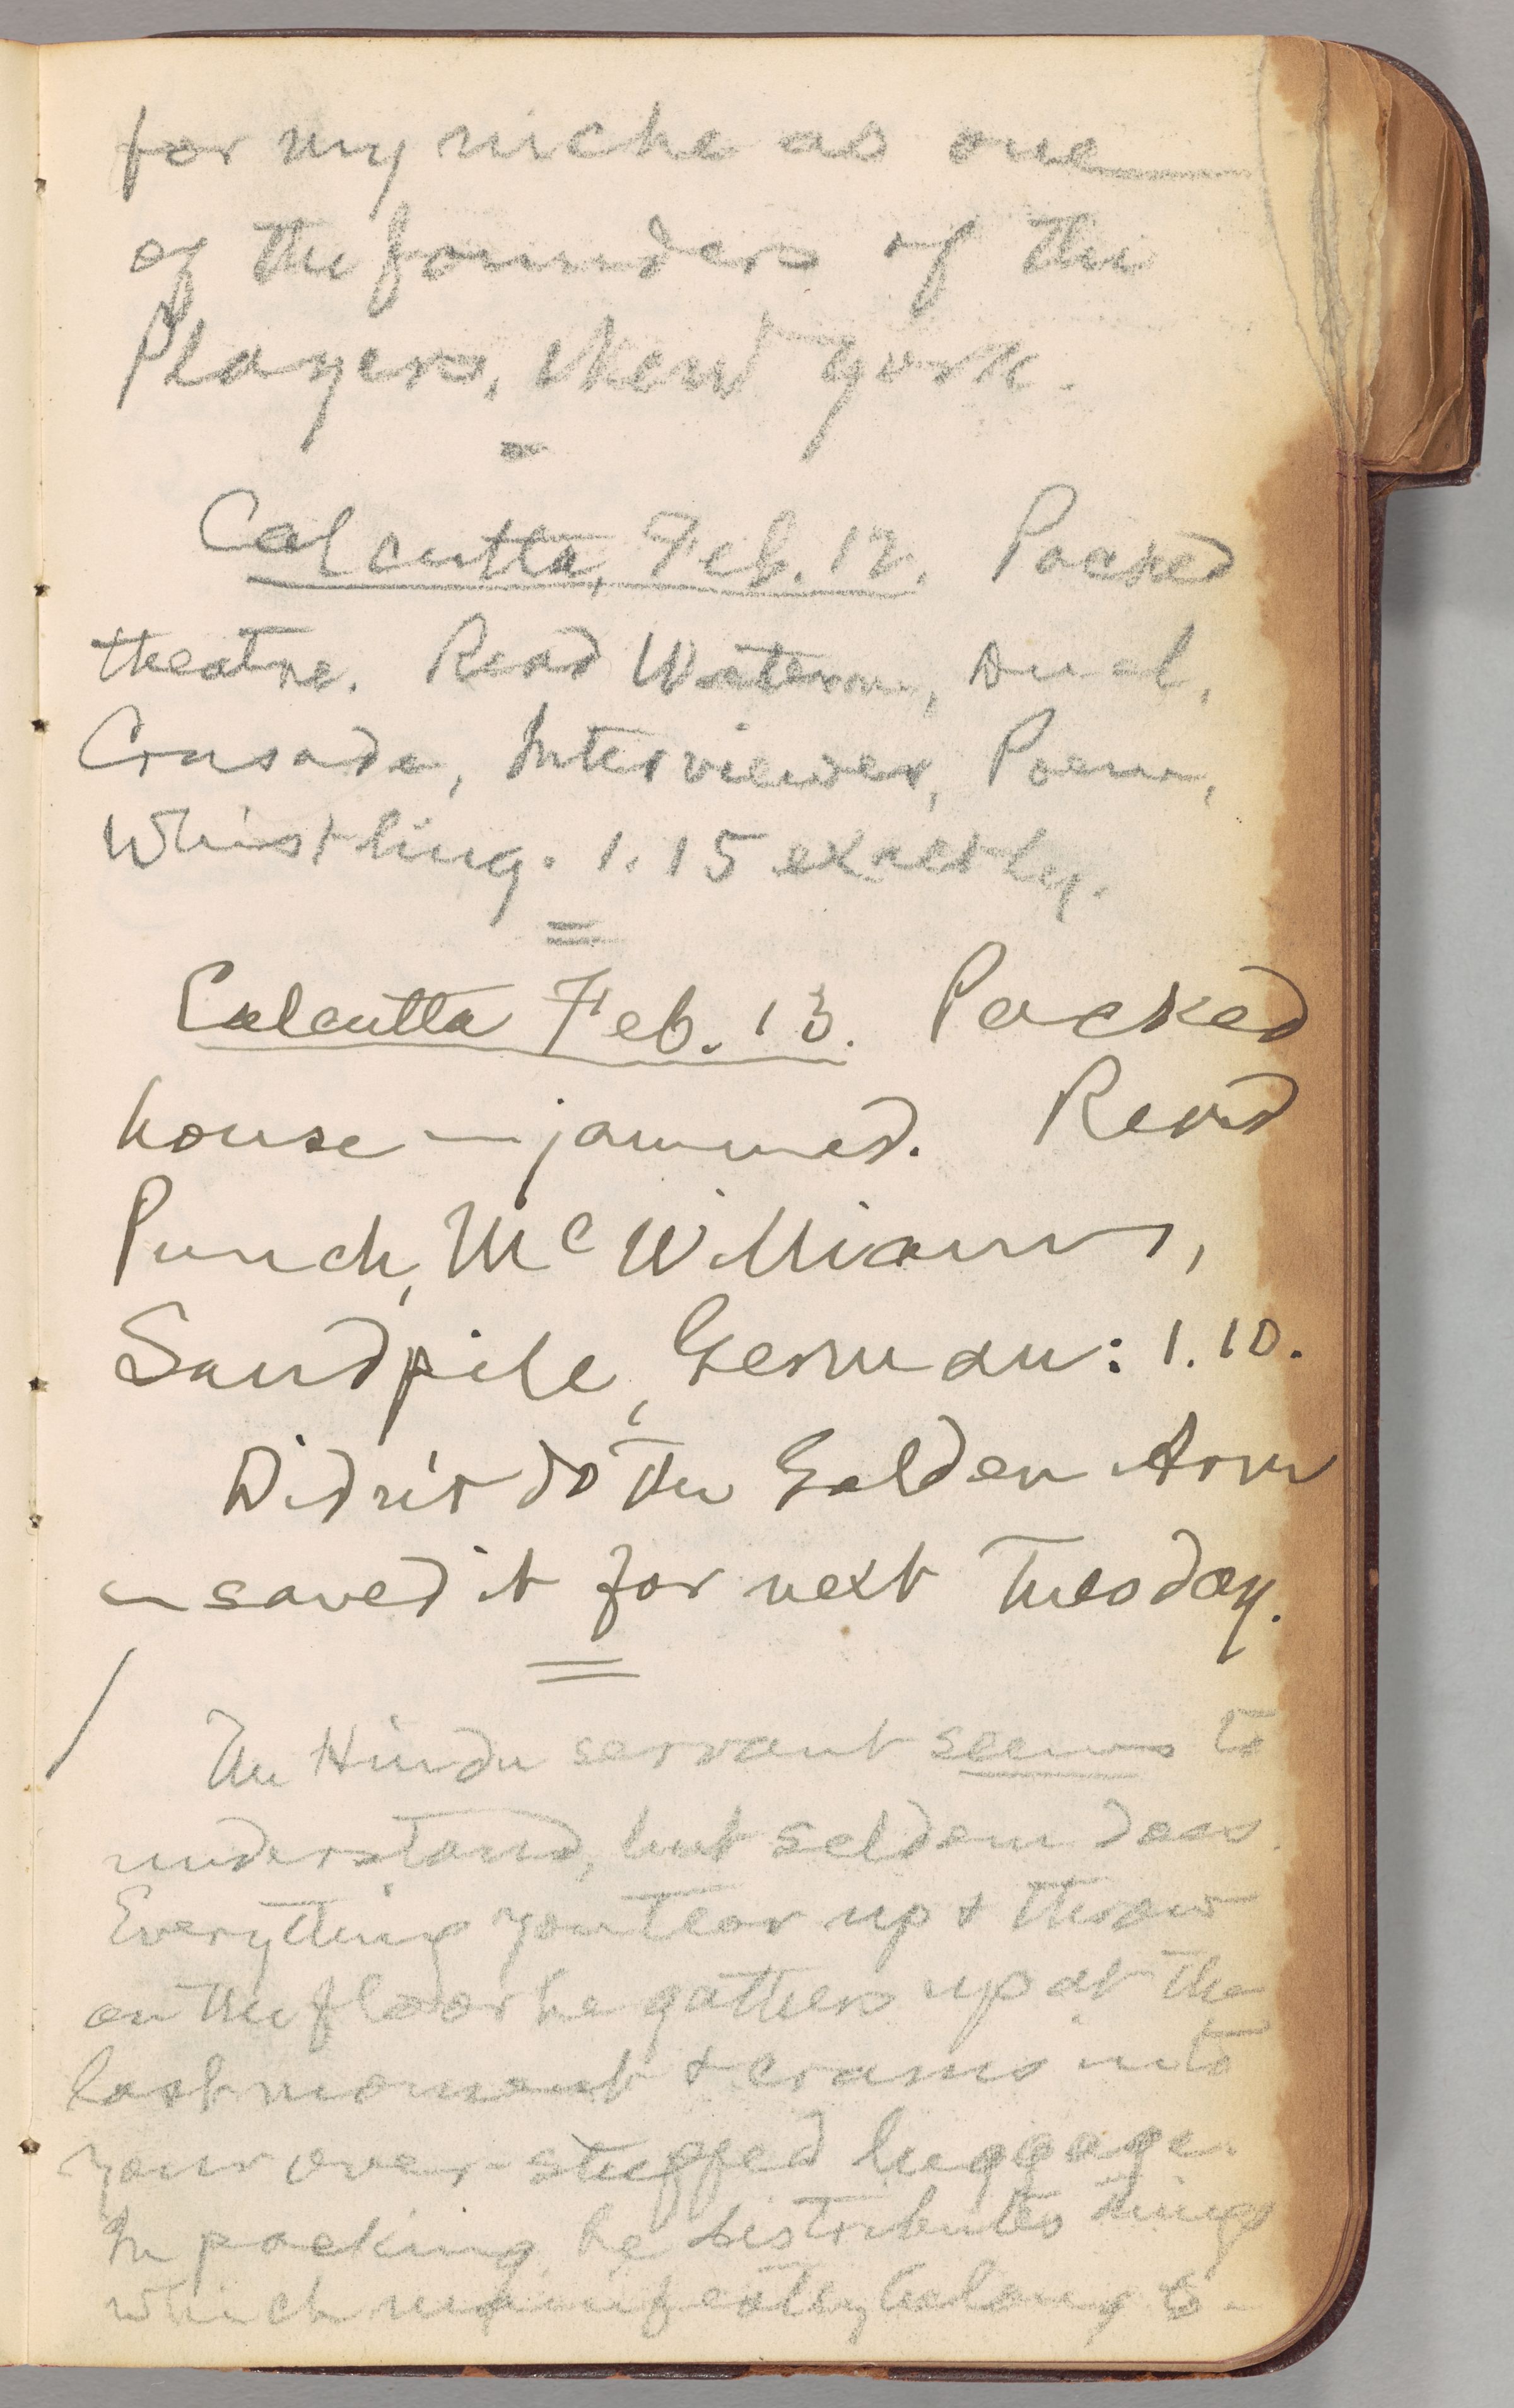 for my niche as one
of the founders of the
Players, New York.
Calcutta, Feb. 12. Packed
theatre. Read Watermn, Duel,
Crusade, Interviewer, Poem,
Whistling. 1.15 exactly.
Calcutta Feb. 13. Packed
house — jammed. Read
Punch, McWilliams,
Sandpile, German: 1.10.
Didn't do the Golden Arm
— saved it for next Tuesday.
The Hindu servant seems to
understand, but seldom does.
Everything you tear up & throw
on the floor he gathers up at the
last moment & crams into
your over-stuffed luggage.
In packing, he distributes things
which manifestly belong to-